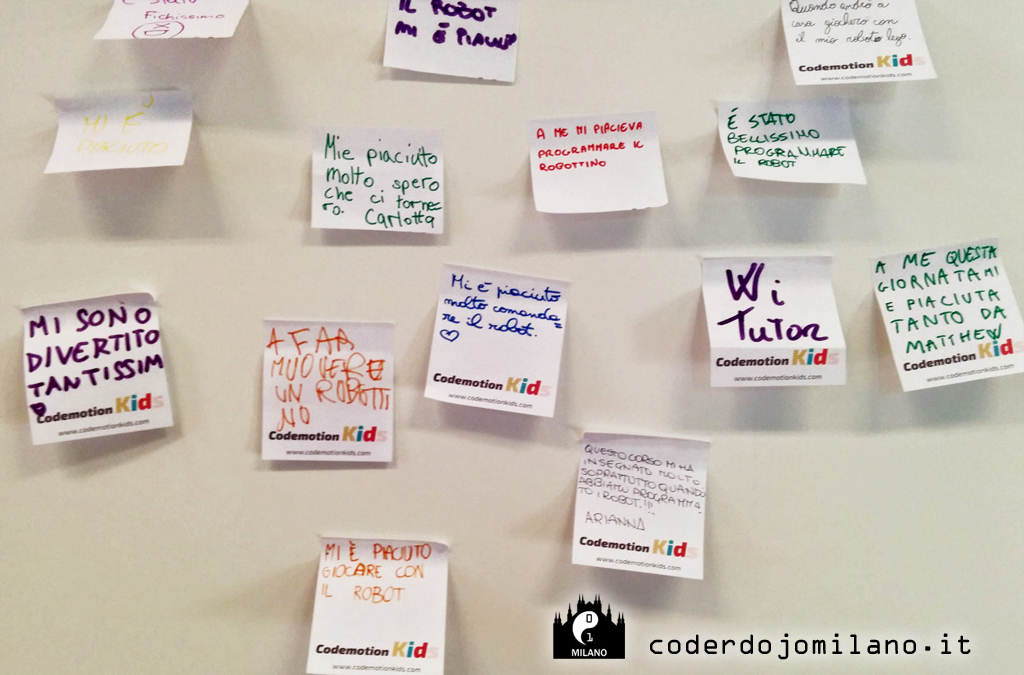 È STATO
Fichissimo
IL ROBOT
MI È PIACIUTO
Quando andrò a
casa giocherò con
il mio robot lego.
Codemotion Kids
www.codemotionkids.com
MI È
PIACIUTO
Mie piaciuto
molto spero
che ci torne=
rò. Carlotta
A ME MI PIACIEVA
PROGRAMMARE IL
ROBOTTINO
È STATO
BELLISSIMO
PROGRAMMARE
IL ROBOT
MI SONO
DIVERTITO
TANTISSIM
O
Codemotion Kids
www.codemotionkids.com
A FAA
MUOVERE
UN ROBOTTI
NO
Codemotion Kids
www.codemotionkids.com
Mi è piaciuto
molto comanda=
re il robot.
Codemotion Kids
www.codemotionkids.com
W i
TuToR
Codemotion Kids
www.codemotionkids.com
A ME QUESTA
GIORNATA MI
E PIACIUTA
TANTO DA
MATTHEW
Codemotion Kids
www.codemotionkids.com
QUESTO CORSO MI HA
INSEGNATO MOLTO
SOPRATTUTTO QUANDO
ABBIAMO PROGRAMMA
TO I ROBOT!!!
ARIANNA
Codemotion Kids
www.codemotionkids.com
MI È PIACIUTO
GIOCARE CON
IL ROBOT
Codemotion Kids
www.codemotionkids.com
0
1
MILANO
coderdojomilano.it